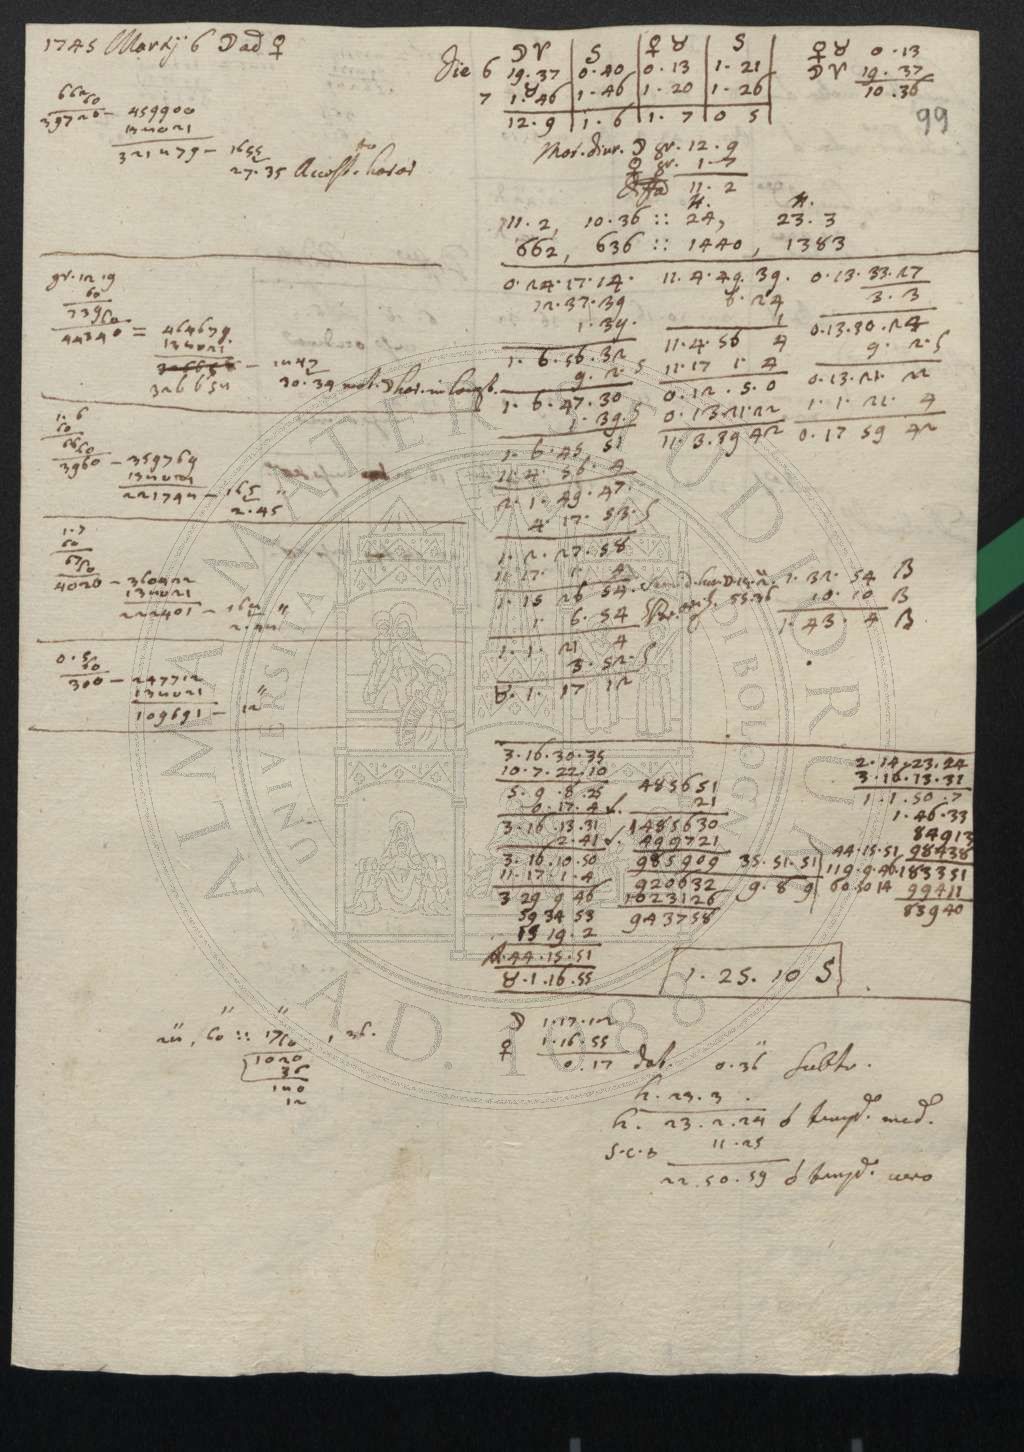 1745 Martij 6 ☽ ad ♀
662
60
39720 - 459900
134021
321479 - 1655
27.35 Accessus horar
gr. 12. 9
60
739
60
44340 = 464679
134021
326654 - 1847
30.39 mot. ☽ hor. in long.
1. 6
60
66
60
3960 - 359769
134021
221742 - 165 "
2.45
1. 7
60
67
60
4020 - 360422
134021
222401 - 164 "
2.44
0. 5
60
300 - 247712
134021
109691 - 12 "
☽ ♈ | S | ♀ ♉ | S
die 6 19.37 | 0.40 | 0.13 | 1.21
♉
7 1.46 | 1.46 | 1.20 | 1.26
12.9 | 1.6 | 1.7 | 0 5
♀ ♉ 0.13
☽ ♈ 19.37
10.36
99
Mot. diur. ☽ gr. 12. 9
♀ gr. 1. 7
11. 2
H. H.
11. 2, 10.36 :: 24, 23. 3
662, 636 :: 1440, 1383
0.24.17.14.
12.37.39
1.39.
1. 6.56.32
9. 2. S
1. 6.47.30
1.39. S
1. 6.45.51
11.4.56.4
2. 1.49.47.
4.17.53. S
1. 2.27.58
11.17. 1. 4
1.15 26 54.
1. 6.54
1. 1. 21 4
3.52. S
♉. 1. 17 12
11.4.49.39.
6.24
1
11.4.56 4
11.17 1. 4
0.12. 5.0
0.13.21.22
11.3.39 42
0.13.33.27
3. 3
0.13.30.24
9. 2. S
0.13.21. 22
1. 1. 21. 4
0.17 59 42
1. 32. 54 B
10. 10 B
1. 43. 4 B
3.16.30.35
10.7.22.10
5.9.8.25
0.17.4
3.16.13.31
2.41
3.16.10.50
11.17.1.4
3 29 9 46
59 34 53
15 19. 2
44.15.51
♉.1.16.55
485651
21
1485630
499721
985909
920632
1023126
943758
35.51.51
9. 8 9
44.15.51
119.9.46
60.50 14
2.14.23.24
3.16.13.31
1.1.50.7
1.46.33
84913
98438
183351
99411
83940
1. 25. 10 S
24 ", 60 :: 17 ", 36.
60
1020
36
140
12
☽ 1.17.12
♀ 1.16.55
0.17 dat. 0.36 " subtr.
h. 23.3.
h. 23.2.24 ☌ temp. med.
11.25
22.50.59 ☌ temp. vero
ALMA MATER STUDIORUM
A.D. 1088
UNIVERSITÀ DI BOLOGNA